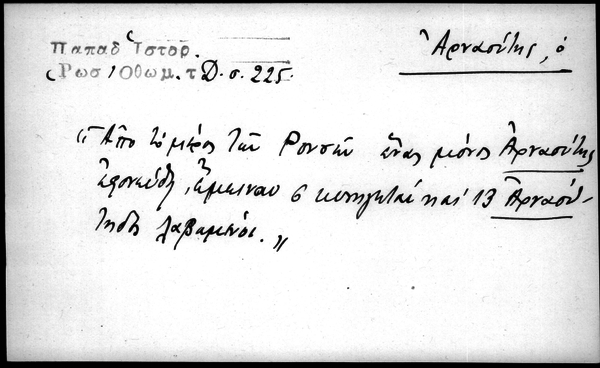 Παπαδ Ἱστορ.
Ἀρναούτης, ὁ
Ρωσ/Οθωμ. τ. Δ. σ. 225.
"Ἀπὸ τὸ μέρος τῶν Ρουσῶν ἕνας μόνος Ἀρναούτης
ἐφονεύθη, ἔμειναν 6 κυνηγηταὶ καὶ 13 Ἀρναού-
τηδες λαβωμένοι."